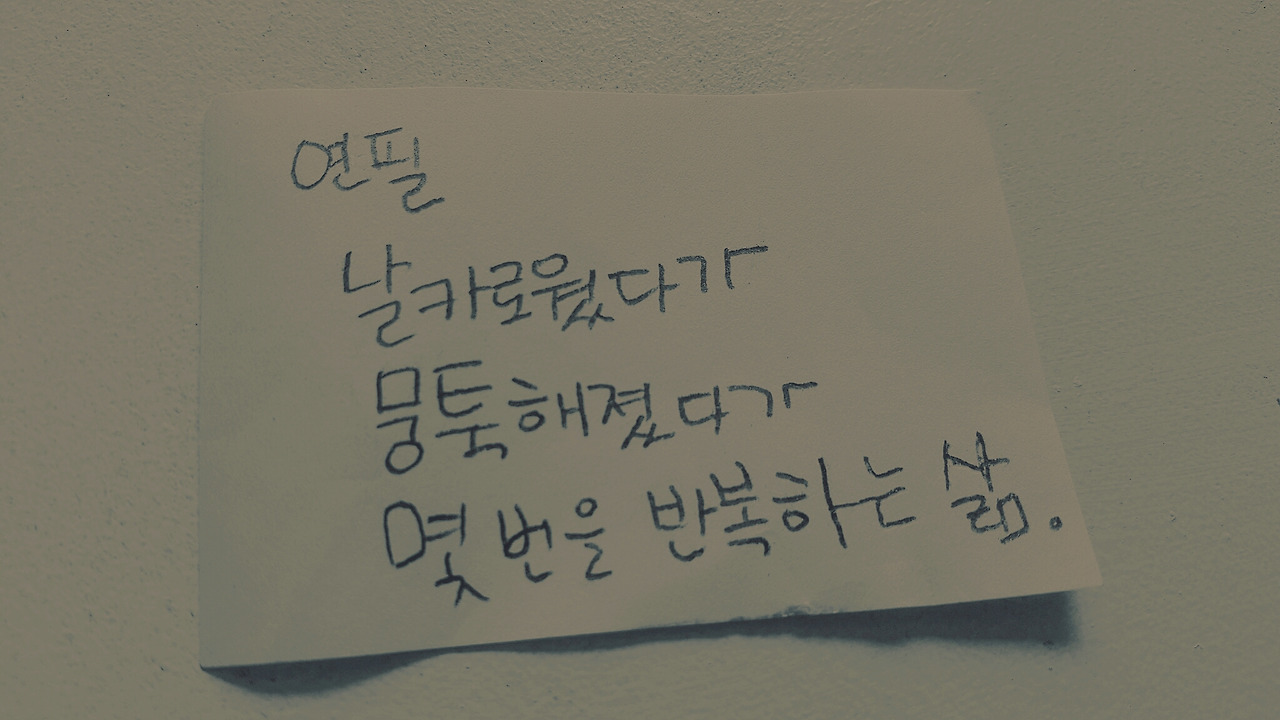 연필
날카로웠다가
뭉툭해졌다가
몇 번을 반복하는 삶.